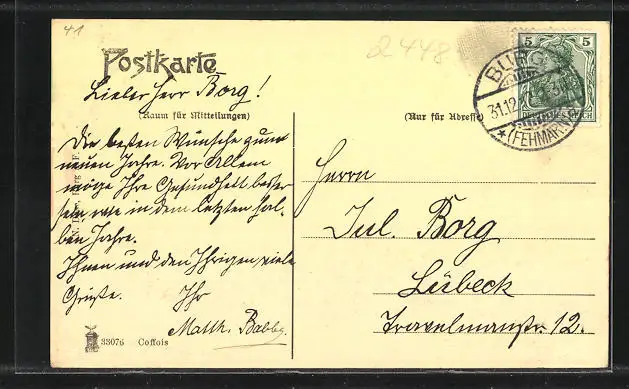 41
2448
Postkarte
5 5
BURG
31.12
* (FEHMARN)
DEUTSCHES REICH
(Raum für Mitteilungen)
(Nur für Adresse)
Lieber Herr Borg!
Die besten Wünsche zum
neuen Jahre. Vor Allem
möge Ihre Gesundheit besser
sein, wie in dem letzten hal-
ben Jahre.
Ihnen und den Ihrigen viele
Grüße. Ihr
Matth.
Herrn
Jul. Borg
Lübeck
Travelmannstr. 12.
33076 Coffois